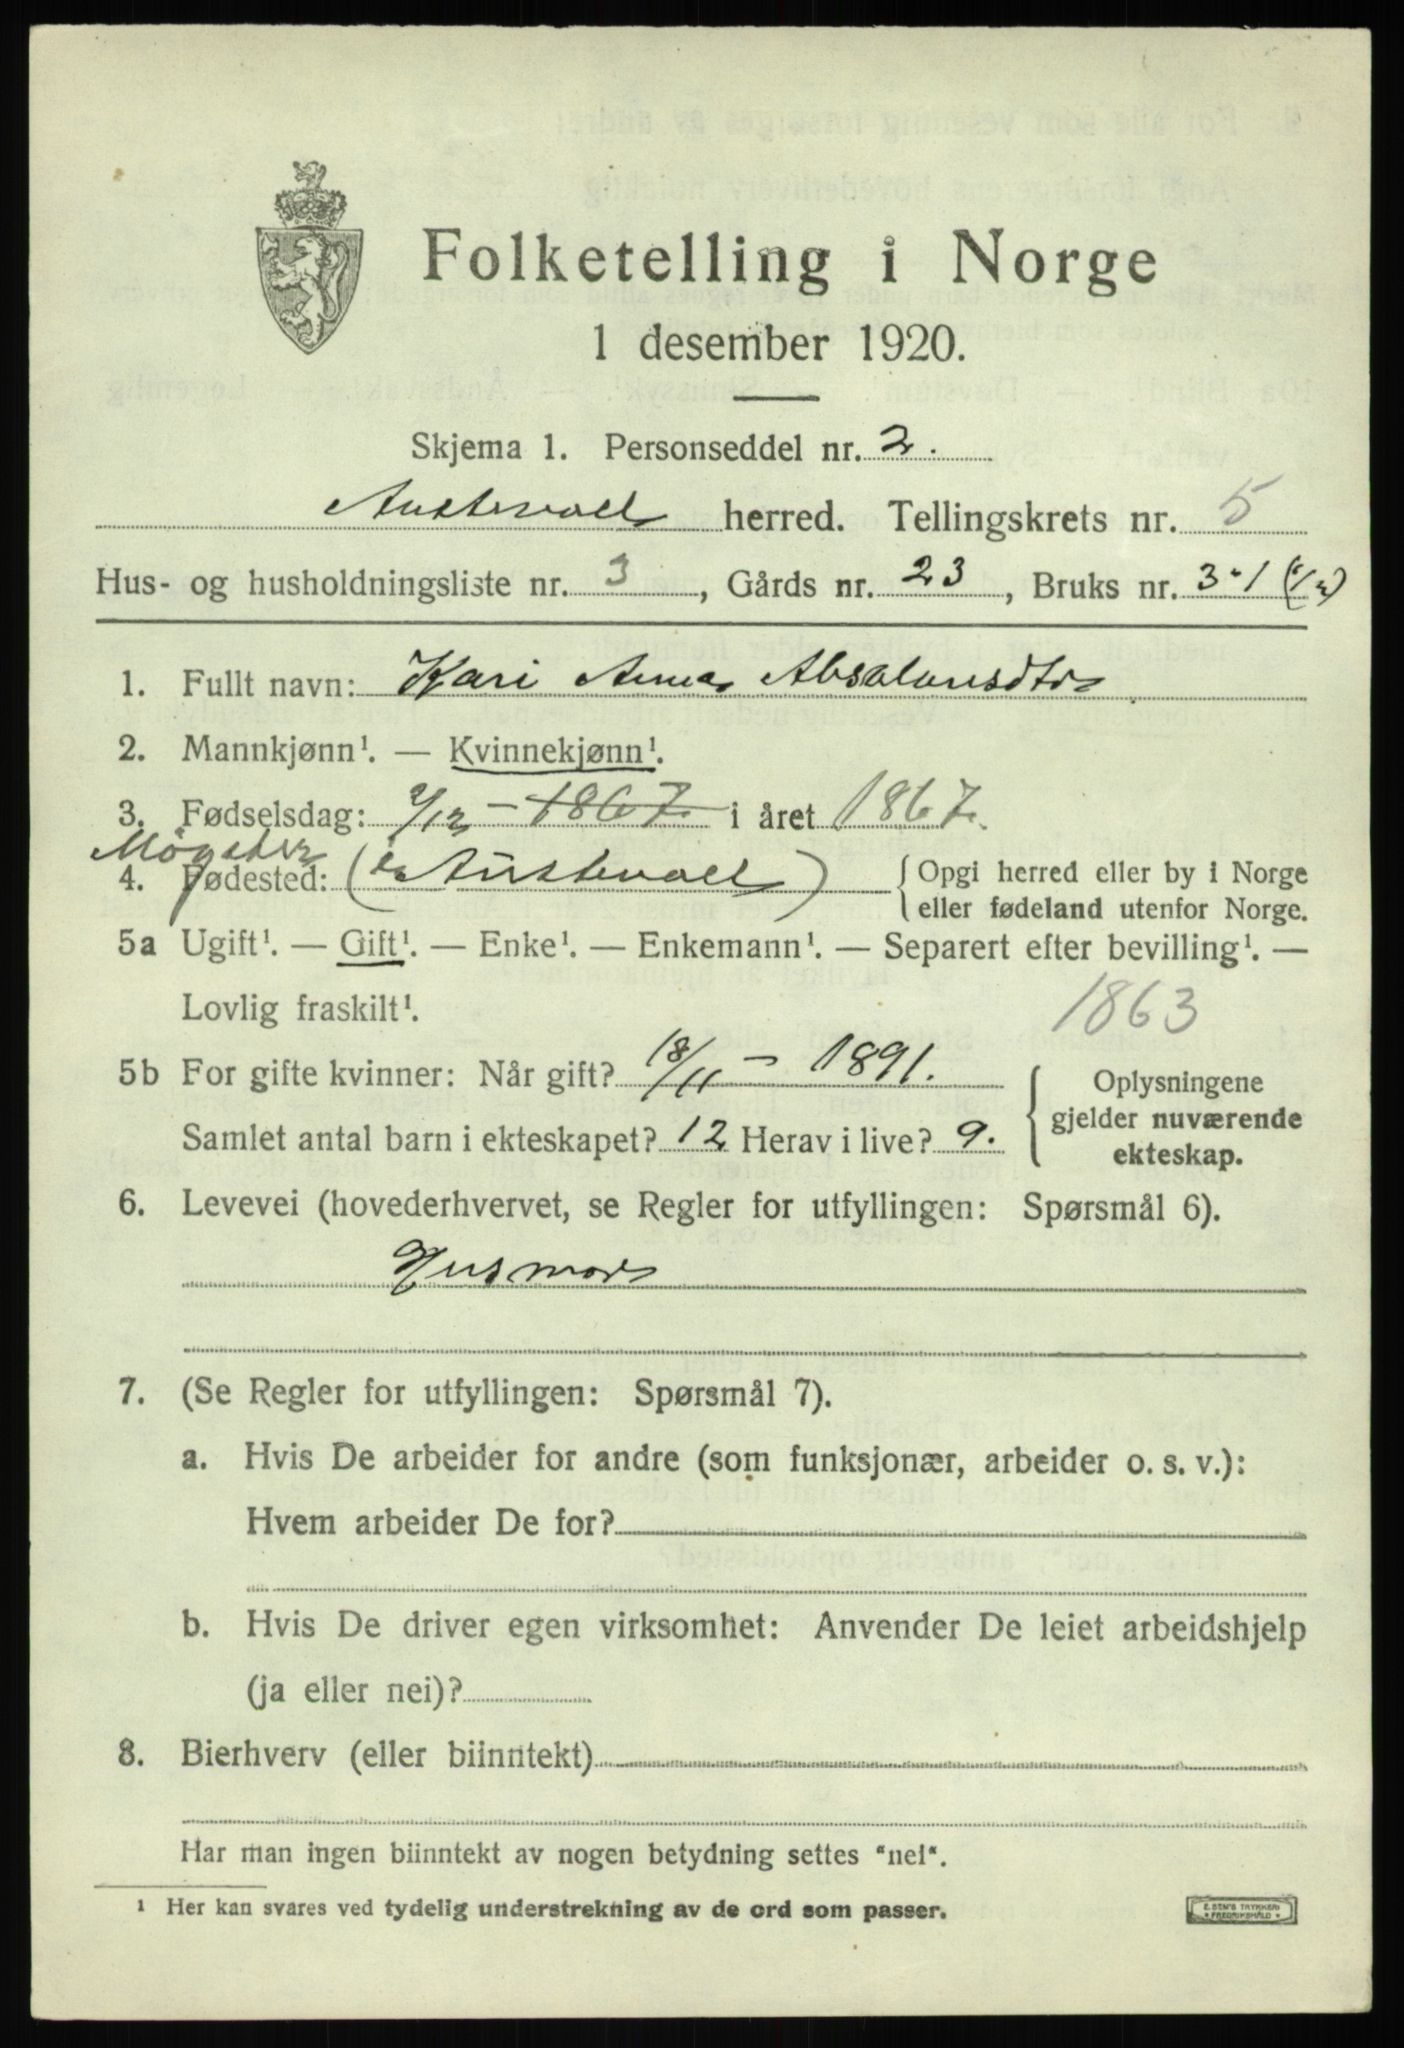 Folketelling i Norge
1 desember 1920.
Skjema 1. Personseddel nr. 2.
Austevoll herred. Tellingskrets nr. 5
Hus- og husholdningsliste nr. 3, Gårds nr. 23, Bruks nr. 3-1 (1/2)
1. Fullt navn: Kari Anna Absalonsdtr
2. Mannkjønn¹. — Kvinnekjønn¹.
3. Fødselsdag: 2/12 - 1867. i året 1867.
Møgster
4. Fødested: (i Austevoll) { Opgi herred eller by i Norge
eller fødeland utenfor Norge.
5a Ugift¹. — Gift¹. — Enke¹. — Enkemann¹. — Separert efter bevilling¹. —
Lovlig fraskilt¹. 1863
5b For gifte kvinner: Når gift? 18/11 - 1891.
Samlet antal barn i ekteskapet? 12 Herav i live? 9.
{ Oplysningene
gjelder nuværende
ekteskap.
6. Levevei (hovederhvervet, se Regler for utfyllingen: Spørsmål 6).
Husmor
7. (Se Regler for utfyllingen: Spørsmål 7).
a. Hvis De arbeider for andre (som funksjonær, arbeider o. s. v.):
Hvem arbeider De for?
b. Hvis De driver egen virksomhet: Anvender De leiet arbeidshjelp
(ja eller nei)?
8. Bierhverv (eller biinntekt)
Har man ingen biinntekt av nogen betydning settes "nei".
¹ Her kan svares ved tydelig understrekning av de ord som passer.
E. SEM'S TRYKKERI
* FREDRIKSHALD *